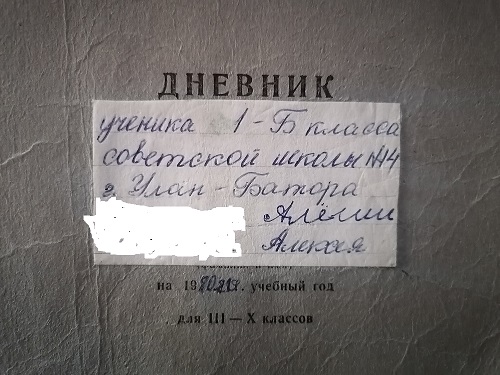 ДНЕВНИК
ученика 1-Б класса
советской школы №14
г. Улан-Батора
Алёши
Алексея
на 1980/81г. учебный год
для III — X классов